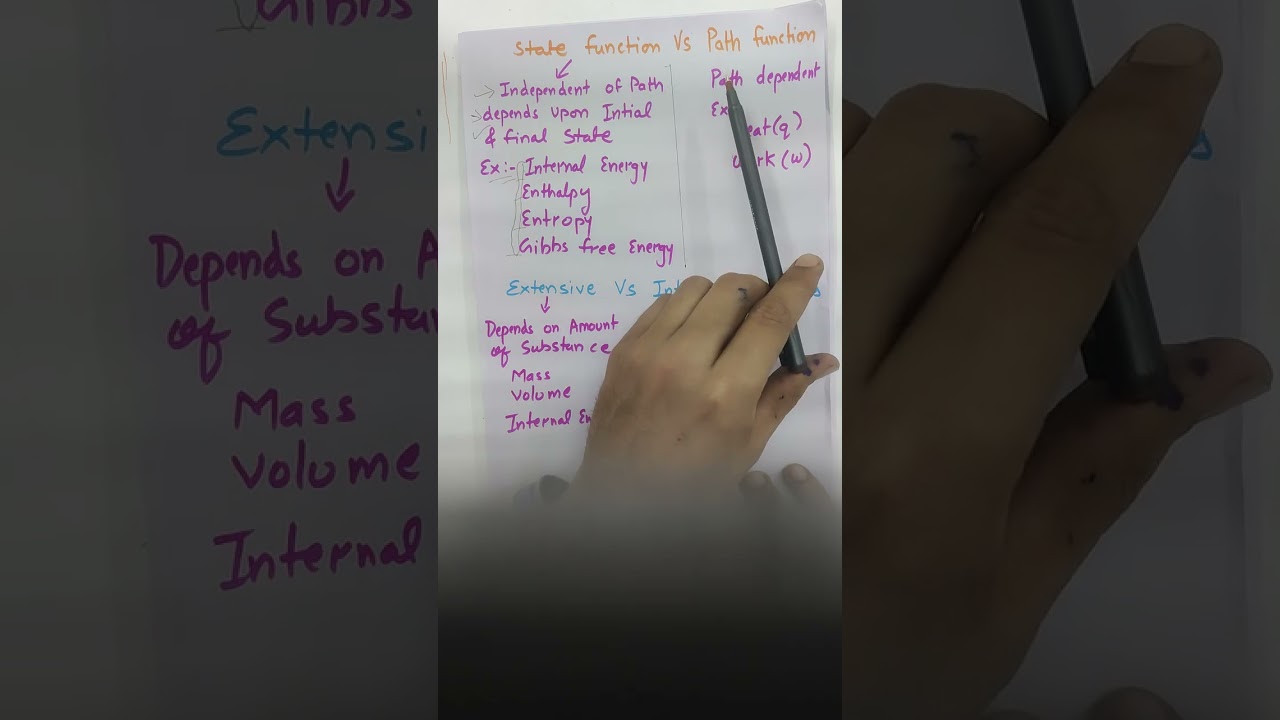 State function Vs Path function
→ Independent of Path
→ depends upon Intial
& final State
Ex:- Internal Energy
Enthalpy
Entropy
Gibbs free Energy
Path dependent
Ex
eat (q)
work (w)
Extensive Vs Int
Depends on Amount
of Substance
Mass
Volume
Internal En
Gibbs
Extensi
Depends on A
of Substan
Mass
Volume
Internal